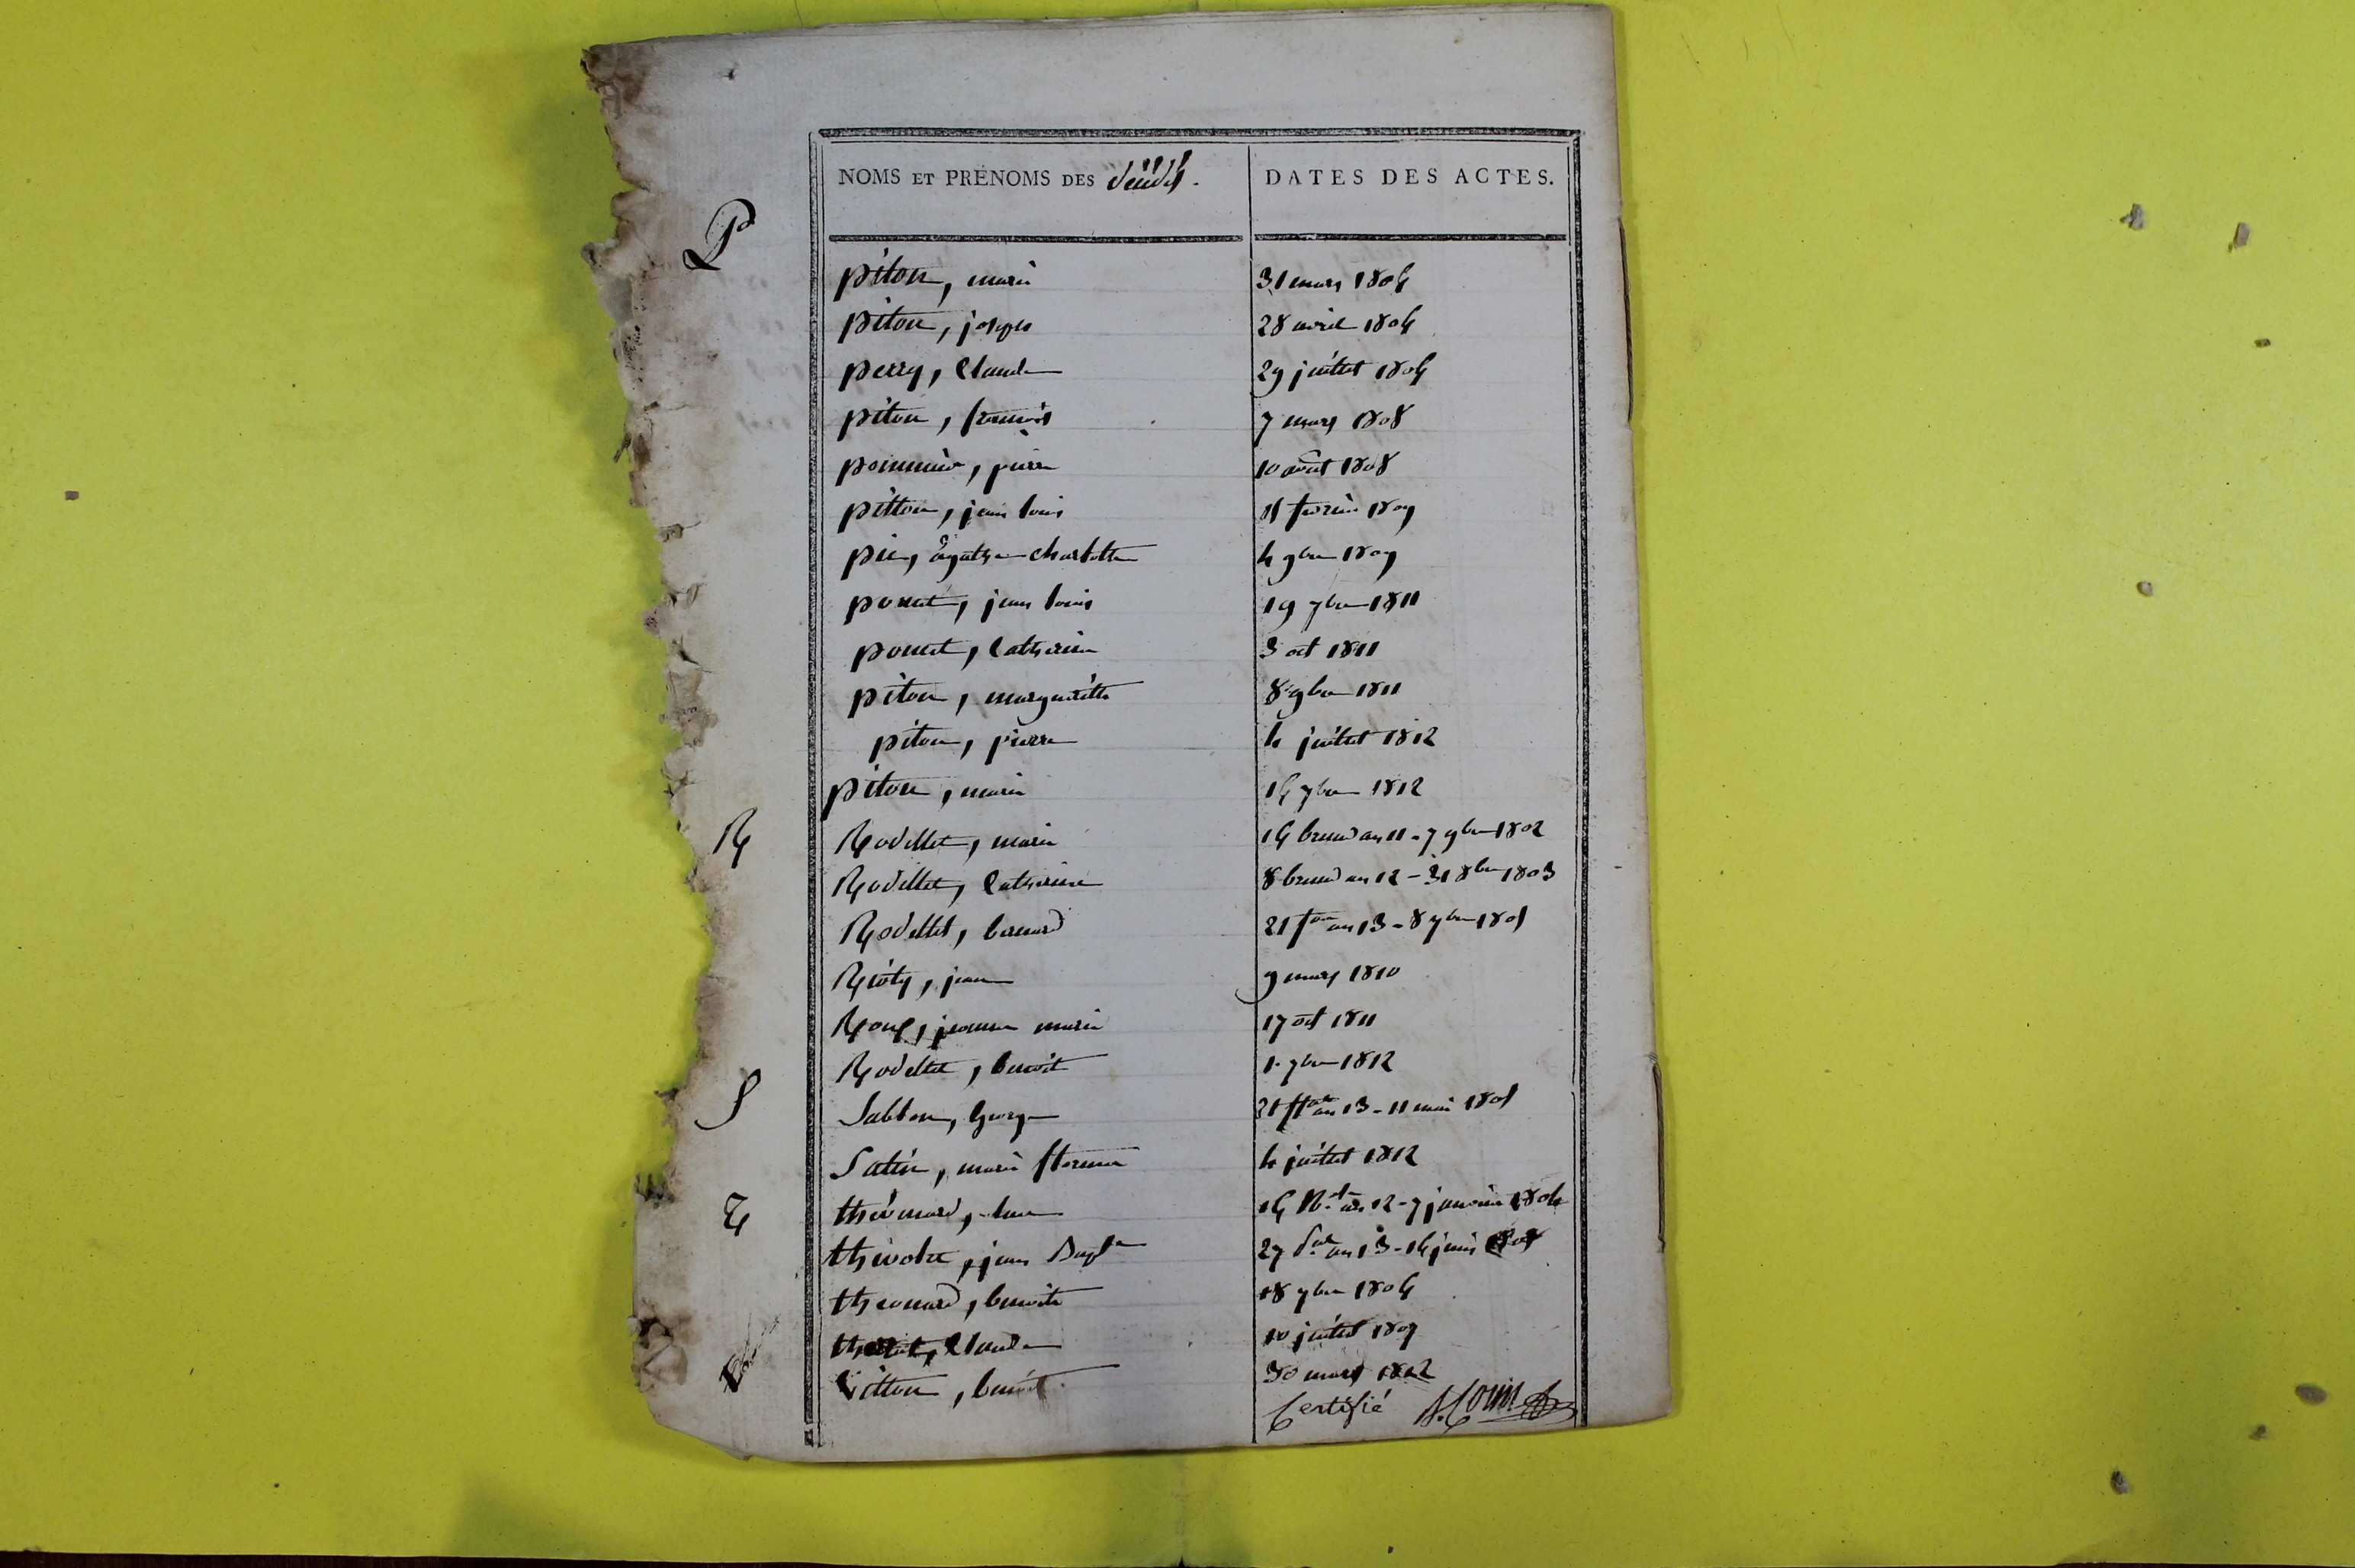 NOMS ET PRÉNOMS DES décédés. DATES DES ACTES.
P
piton, marie 31 mars 1804
piton, joseph 28 avril 1804
perry, Claude 29 juillet 1804
piton, francois 7 mars 1808
pommier, pierre 10 août 1808
pitton, jean louis fevrier 1809
pic, agathe charlotte 4 9bre 1809
poncet, jean louis 19 7bre 1811
poncet, Catherine 3 oct 1811
piton, margueritte 8 9bre 1811
piton, pierre 4 juillet 1812
piton, marie 14 7bre 1812
R Rodellet, marie 16 brum an 11 - 7 9bre 1802
Rodellet, Catherine 8 brum an 12 - 31 8bre 1803
Rodellet, bernard 21 an 13 - 8 7bre 1805
Rioty, jean 9 mars 1810
Roux, jeanne marie 17 oct 1811
Rodellet, benoit 1. 7bre 1812
S Sabbon, George 21 flal an 13 - 11 mai 1805
Satin, marie 4 juillet 1812
T thévenard, 16 an 12 - 7 janvier 1804
thivolet, jean Bapte 27 an 13 - 16 juin 1805
thevenard, benoite 18 7bre 1804
Claude 10 juillet 1809
V Vitton, benoit 30 mars 1812
Certifié